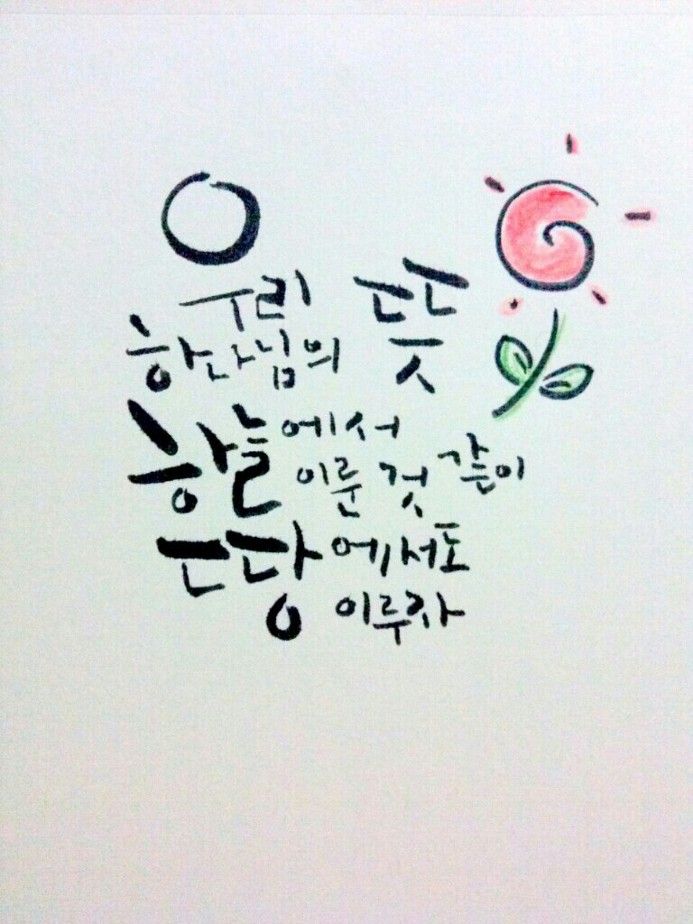 우리
하나님의 뜻
하늘에서
이룬 것 같이
땅에서도
이루자